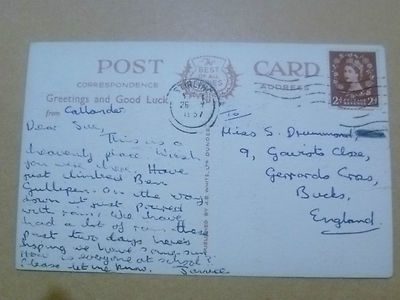 POST CARD
THE BEST OF ALL SERIES
CORRESPONDENCE
ADDRESS
Greetings and Good Luck
from Callander
STIRLING
26
1957
2d 2d
POSTAGE REVENUE
Dear Sue,
This is a
heavenly place wish
you were here. Have
just climbed Ben
On the way
down it just poured
with rain, we have
had a lot of rain these
past two days here's
hoping we have some sun.
How is everyone at school?
Please let me know.
PUBLISHED BY J.B. WHITE, LTD DUNDEE
To
Miss S. Drummond,
9, Close,
Gerrards Cross,
Bucks,
England.